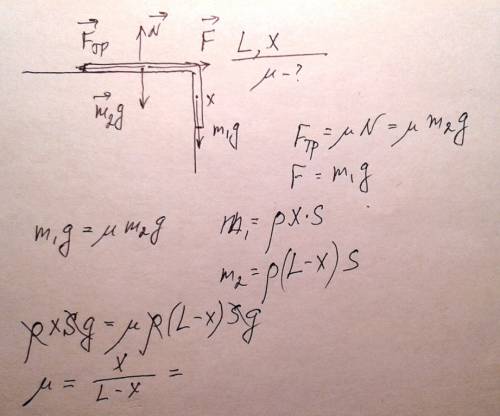 F⃗тр N⃗ F⃗ L, x
μ - ?
m⃗₂g x m₁g
Fтр = μN = μm₂g
F = m₁g
m₁g = μm₂g
m₁ = ρx·s
m₂ = ρ(L-x)s
ρxsg = μρ(L-x)sg
μ = x/(L-x) =